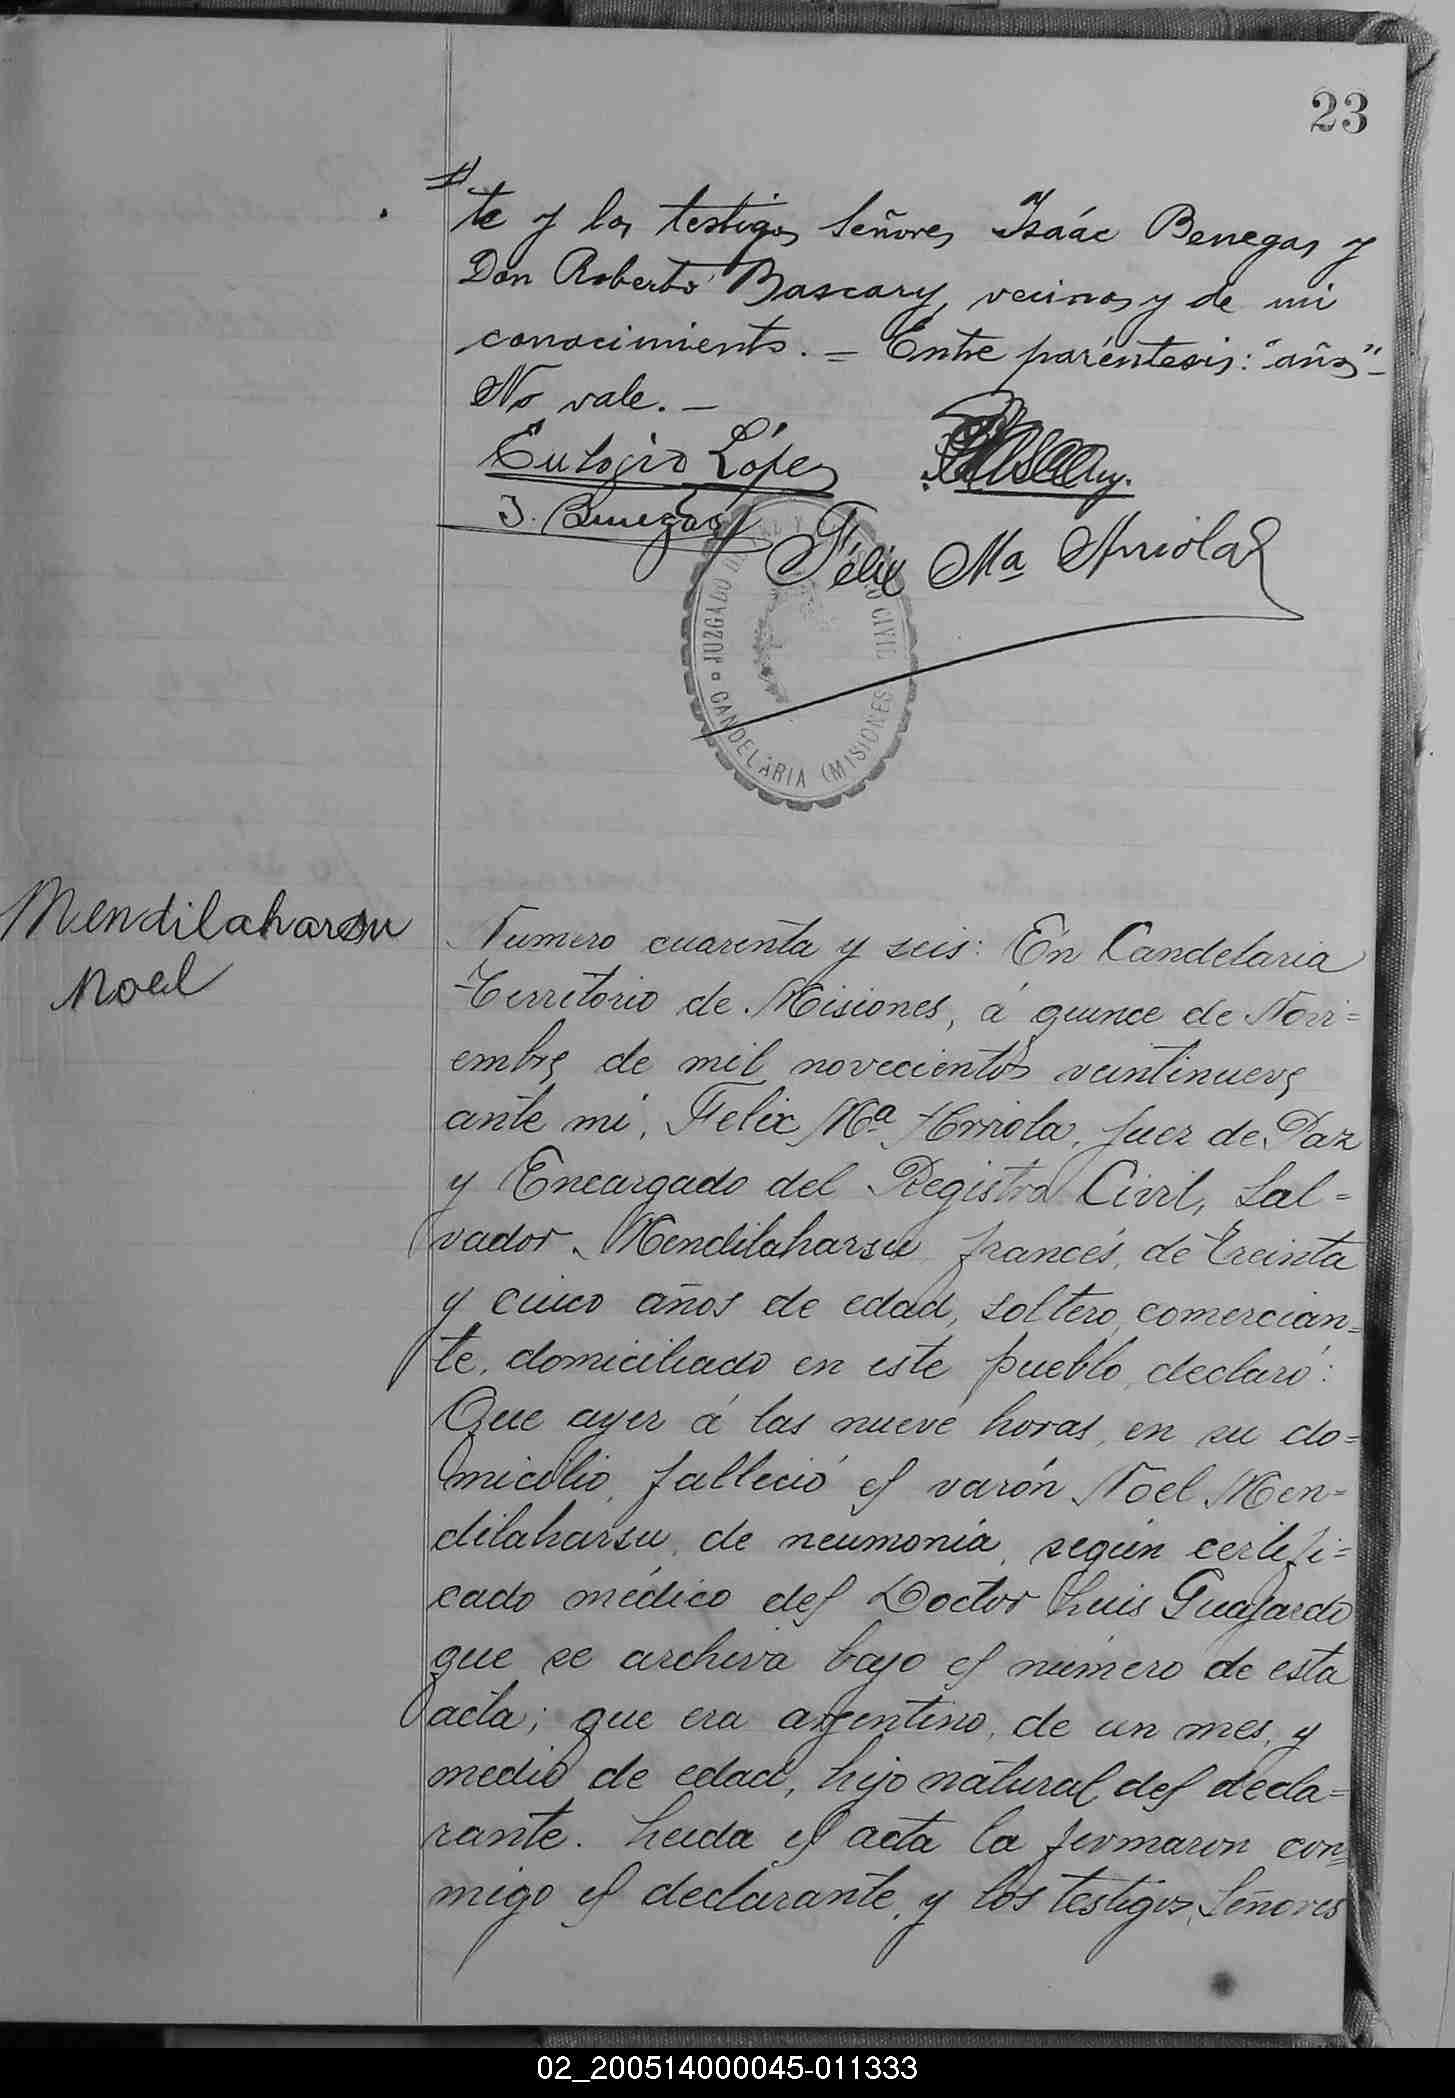 23
te y los testigos Señores Isaác Benegas y
Don Roberto Bascary, vecinos y de mi
conocimiento. = Entre paréntesis: "años" -
No vale. -
Eulogio López
Bascary.
I. Benegas
Félix Mª Arriola
JUZGADO DE PAZ Y REGISTRO CIVIL
CANDELARIA (MISIONES)
Mendilaharsu
Noel
Numero cuarenta y seis: En Candelaria
Territorio de Misiones, á quince de Novi=
embre de mil novecientos veintinueve
ante mi, Felix Mª Arriola, Juez de Paz
y Encargado del Registro Civil, Sal=
vador Mendilaharsu francés, de treinta
y cinco años de edad, soltero, comercian=
te, domiciliado en este pueblo, declaró:
Que ayer á las nueve horas, en su do=
micilio, falleció el varón Noel Men=
dilaharsu, de neumonia, según certifi=
cado médico del Doctor Luis Guajardo
que se archiva bajo el número de esta
acta; que era argentino, de un mes, y
medio de edad, hijo natural del decla=
rante. Leida el acta la firmaron con=
migo el declarante, y los testigos, Señores
02_200514000045-011333